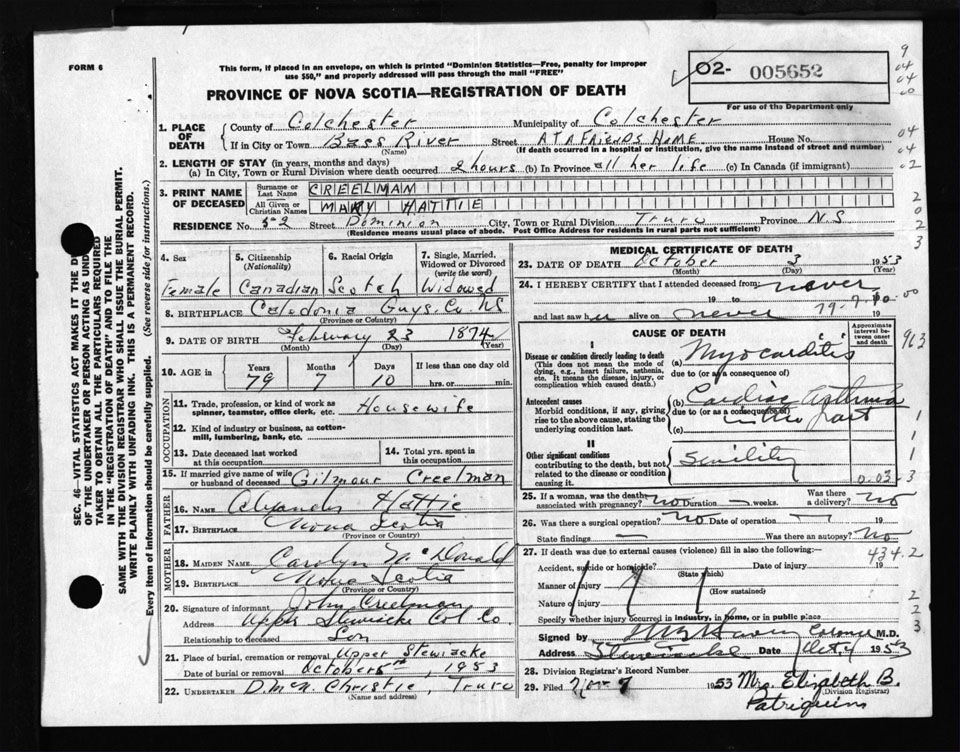 FORM 6
This form, if placed in an envelope, on which is printed "Dominion Statistics—Free, penalty for improper
use $50," and properly addressed will pass through the mail "FREE"
PROVINCE OF NOVA SCOTIA—REGISTRATION OF DEATH
02- 005652
For use of the Department only
1. PLACE OF DEATH
County of Colchester Municipality of Colchester
If in City or Town Bass River Street AT A FRIENDS HOME House No.
(Name) (If death occurred in a hospital or institution, give the name instead of street and number)
2. LENGTH OF STAY (in years, months and days)
(a) In City, Town or Rural Division where death occurred 2 hours (b) In Province all her life (c) In Canada (if immigrant)
3. PRINT NAME OF DECEASED
Surname or Last Name CREELMAN
All Given or Christian Names MARY HATTIE
RESIDENCE No. 52 Street Dominion City, Town or Rural Division Truro Province N.S
(Residence means usual place of abode. Post Office Address for residents in rural parts not sufficient)
4. Sex
Female
5. Citizenship
(Nationality)
Canadian
6. Racial Origin
Scotch
7. Single, Married, Widowed or Divorced
(write the word)
Widowed
8. BIRTHPLACE Caledonia Guys. Co. NS
(Province or Country)
9. DATE OF BIRTH February 23 1874
(Month) (Day) (Year)
10. AGE in
Years Months Days If less than one day old
79 7 10 hrs. or min.
OCCUPATION
11. Trade, profession, or kind of work as
spinner, teamster, office clerk, etc. Housewife
12. Kind of industry or business, as cotton-
mill, lumbering, bank, etc.
13. Date deceased last worked
at this occupation
14. Total yrs. spent in
this occupation
15. If married give name of wife
or husband of deceased Gilmour Creelman
FATHER
16. Name Alexander Hattie
17. Birthplace Nova Scotia
(Province or Country)
MOTHER
18. MAIDEN NAME Carolyn McDonald
19. BIRTHPLACE Nova Scotia
(Province or Country)
20. Signature of informant John Creelman
Address Upper Stewiacke Col Co.
Relationship to deceased Son
21. Place of burial, cremation or removal Upper Stewiacke
Date of burial or removal October 5th, 1953
22. UNDERTAKER D. McN. Christie, Truro
(Name and address)
MEDICAL CERTIFICATE OF DEATH
23. DATE OF DEATH October 3 1953
(Month) (Day) (Year)
24. I HEREBY CERTIFY that I attended deceased from never
19 to 19
and last saw her alive on never 79-7-10-00
CAUSE OF DEATH
Approximate interval between onset and death
I
Disease or condition directly leading to death
(This does not mean the mode of
dying, e.g., heart failure, asthenia,
etc. It means the disease, injury, or
complication which caused death.)
(a) Myocarditis
due to (or as a consequence of)
Antecedent causes
Morbid conditions, if any, giving
rise to the above cause, stating the
underlying condition last.
(b) Cardiac asthma
due to (or as a consequence of) in the past
(c)
II
Other significant conditions
contributing to the death, but not
related to the disease or condition
causing it.
Senility
0.03
25. If a woman, was the death
associated with pregnancy? no Duration — weeks. Was there a delivery? no
26. Was there a surgical operation? no Date of operation — 19
State findings — Was there an autopsy? No
27. If death was due to external causes (violence) fill in also the following:— 434.2
Accident, suicide or homicide? Date of injury 19
(State which)
Manner of injury
(How sustained)
Nature of injury
Specify whether injury occurred in industry, in home, or in public place
Signed by Coroner M.D.
Address Stewiacke Date Oct 4 1953
28. Division Registrar's Record Number
29. Filed Nov 9 1953 Mrs. Elizabeth B. Patriquin
(Division Registrar)
SEC. 46—VITAL STATISTICS ACT MAKES IT THE
OF THE UNDERTAKER OR PERSON ACTING AS
TAKER TO OBTAIN ALL THE PARTICULARS REQUIRED
IN THE "REGISTRATION OF DEATH" AND TO FILE THE
SAME WITH THE DIVISION REGISTRAR WHO SHALL ISSUE THE BURIAL PERMIT.
WRITE PLAINLY WITH UNFADING INK. THIS IS A PERMANENT RECORD.
Every item of information should be carefully supplied. (See reverse side for instructions.)
9
04
04
00
04
04
02
2
0
2
3
963
1
1
1
3
2
2
3